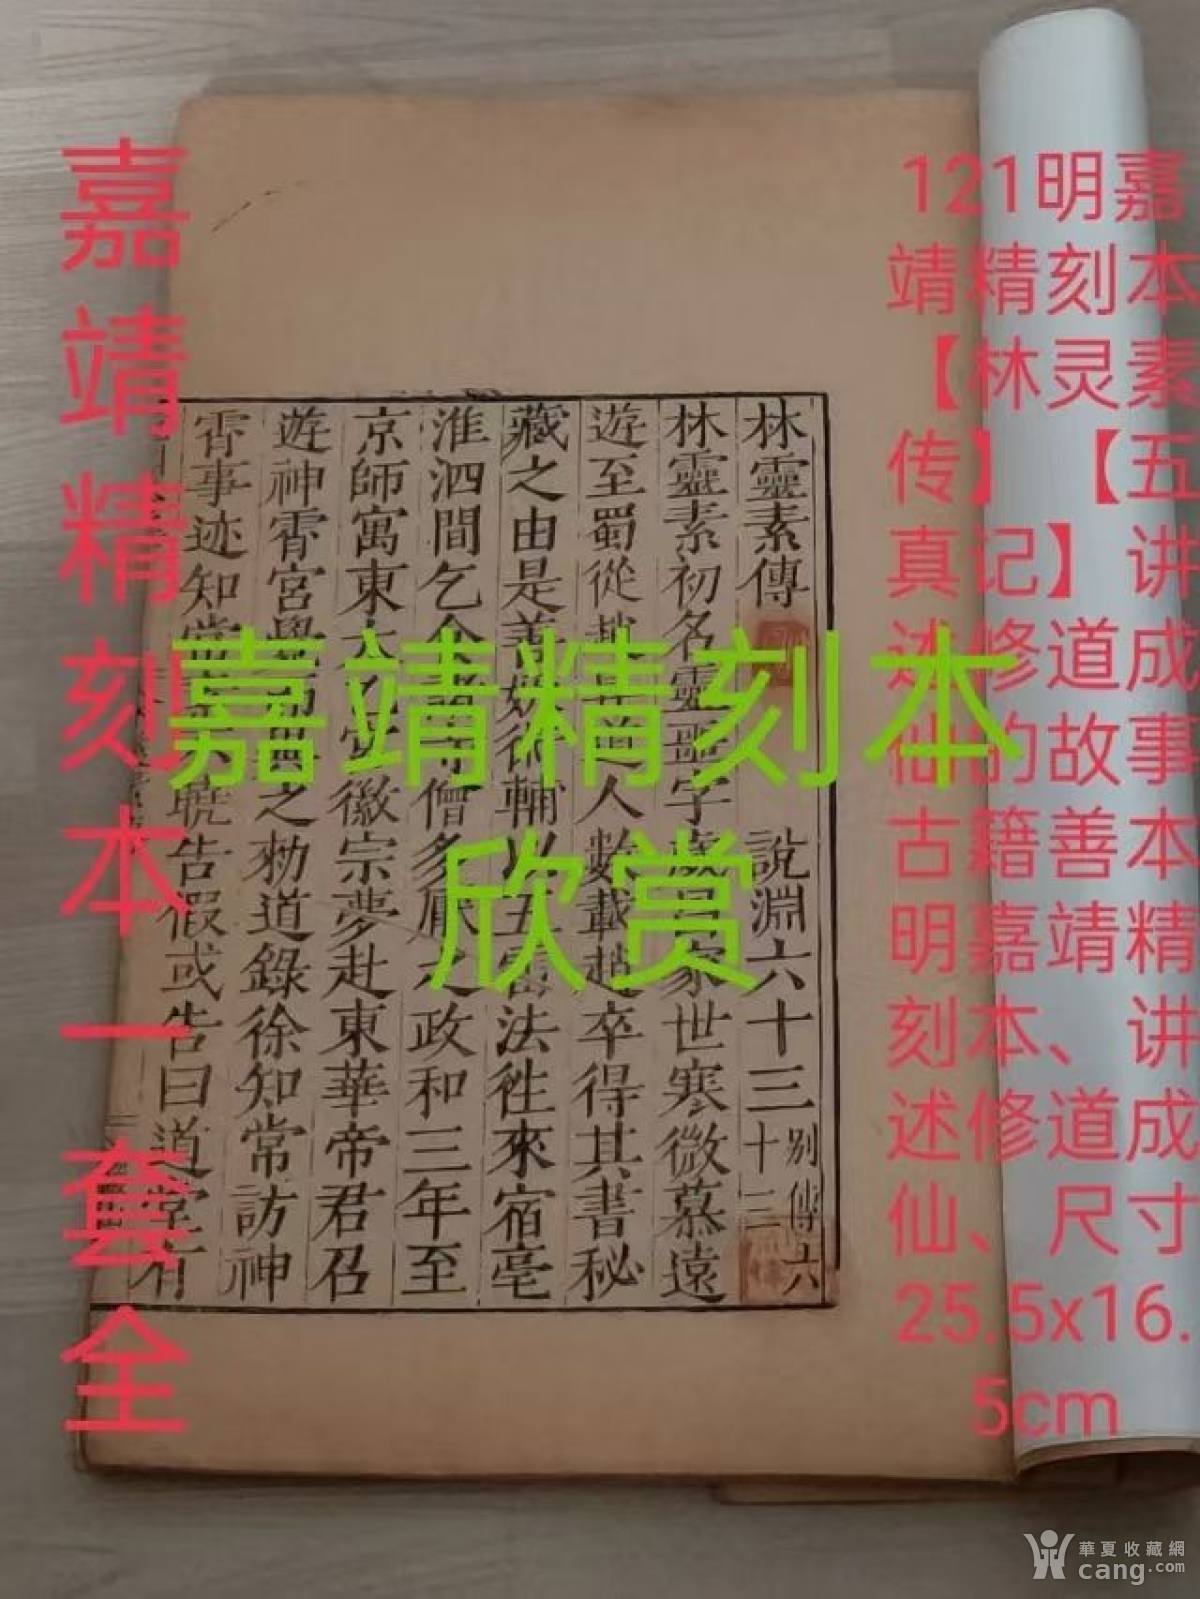 嘉靖精刻本一套全
121明嘉
靖精刻本
【林灵素
传】【五
真记】讲
述修道成
仙的故事
古籍善本
明嘉靖精
刻本、讲
述修道成
仙、尺寸
25.5x16.
5cm
嘉靖精刻本
欣赏
林靈素傳 說淵六十三 別傳六十三
林靈素初名靈噩字歲昌家世寒微慕遠
遊至蜀從趙昇道人數載趙卒得其書秘
藏之由是善妖術輔以五雷法徃來宿亳
淮泗間乞食諸寺僧多厭之政和三年至
京師寓東太乙宮徽宗夢赴東華帝君召
遊神霄宮覺而異之勑道錄徐知常訪神
霄事迹知常告假或告曰道堂有
華夏收藏網
cang.com